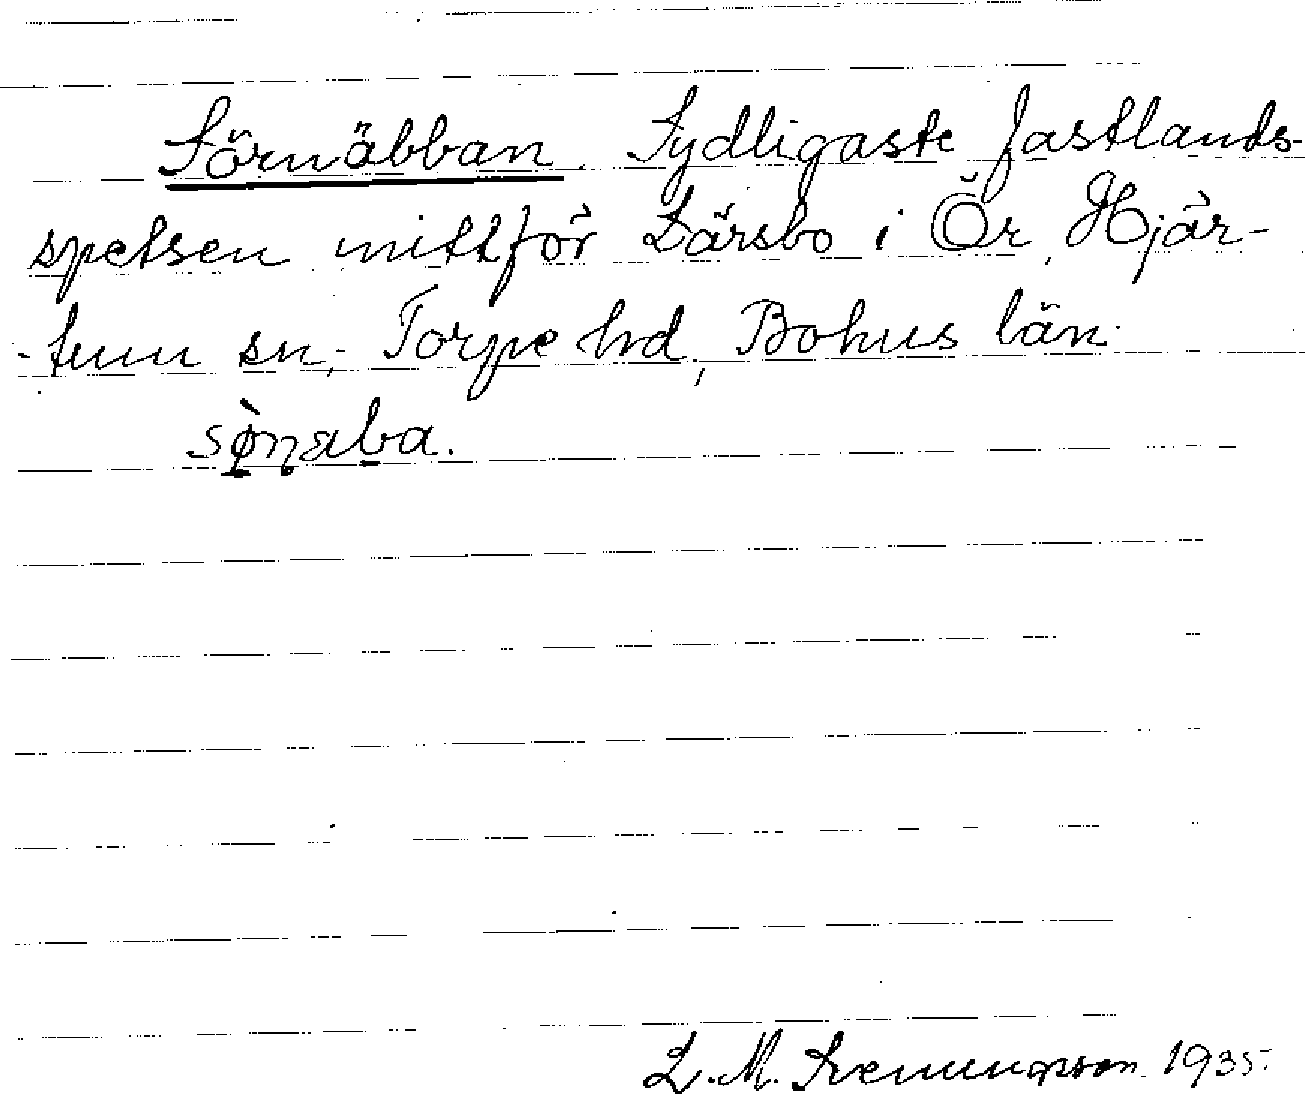 Sörnäbban. Sydligaste fastlands-
spetsen mittför Lärsbo i Ör, Hjär-
-tum sn, Torpe hd, Bohus län.
sø̀ṇaba.
L. M. Svenungsson 1935.